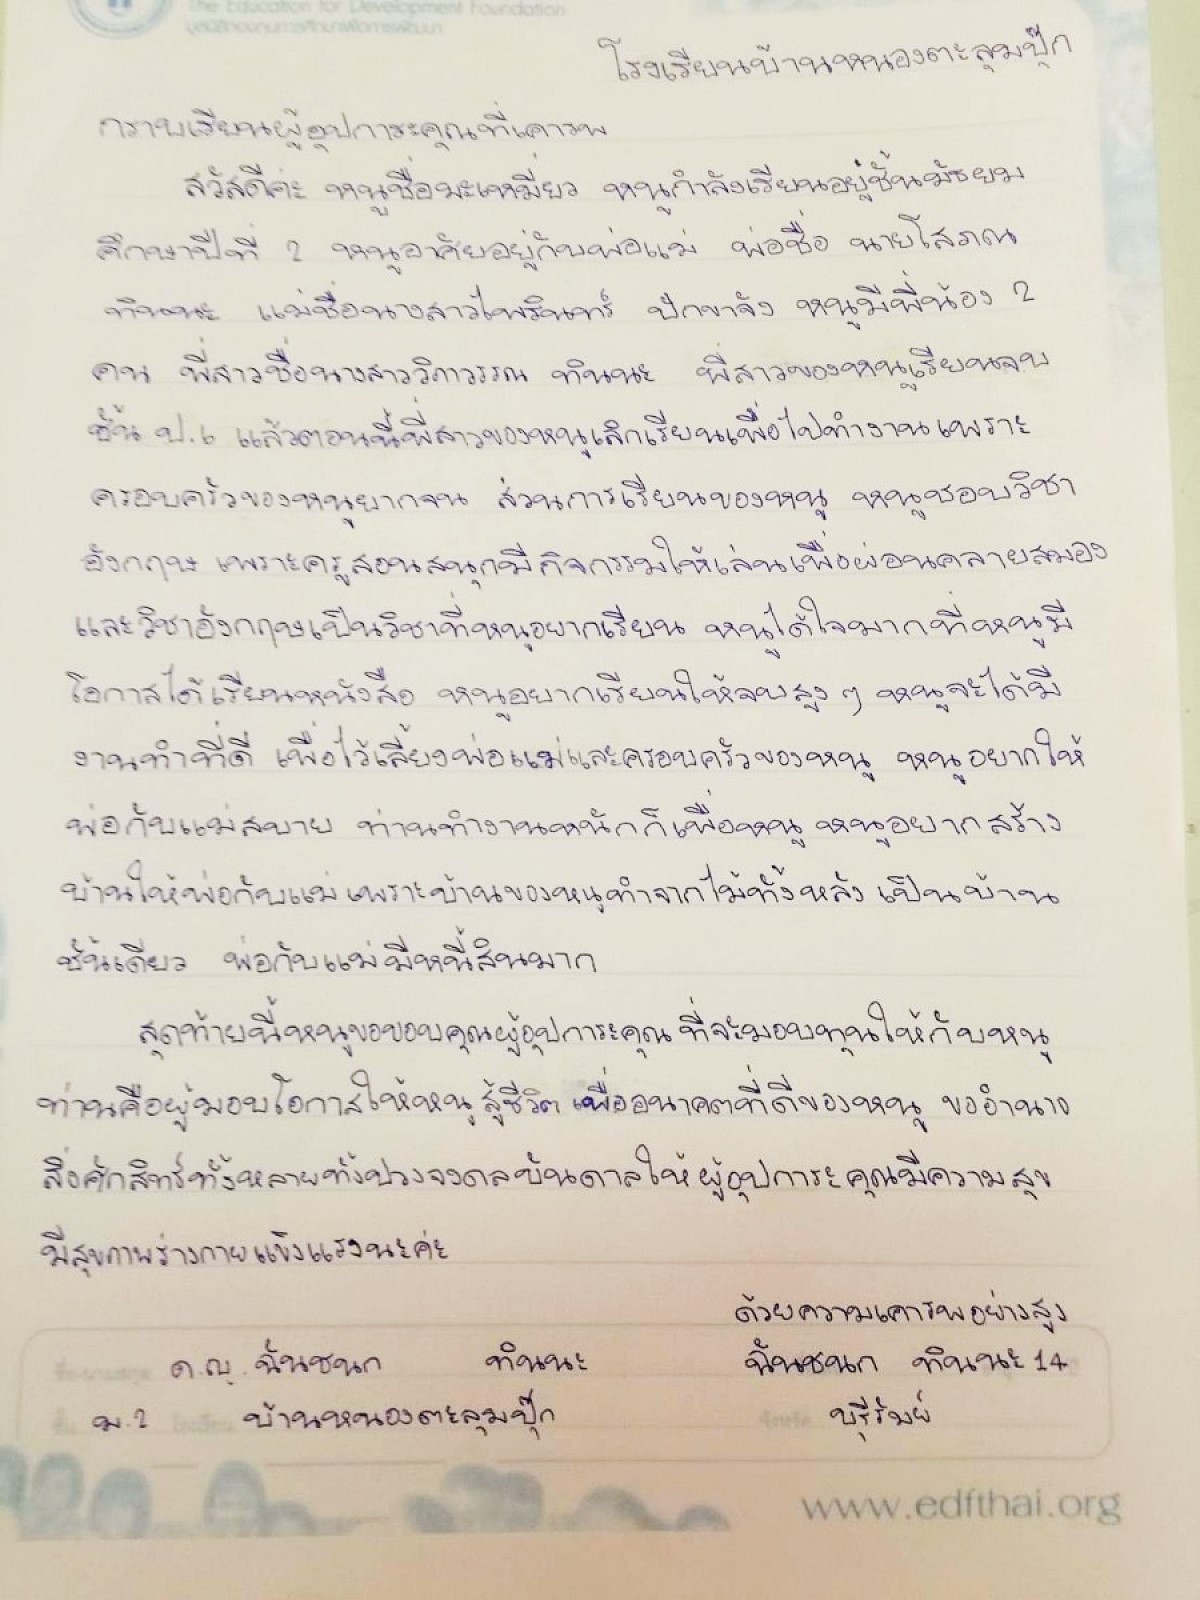 The Education for Development Foundation
มูลนิธิกองทุนการศึกษาเพื่อการพัฒนา
โรงเรียนบ้านหนองตะลุมปุ๊ก
กราบเรียนผู้อุปการะคุณที่เคารพ
สวัสดีค่ะ หนูชื่อมะเหมี่ยว หนูกำลังเรียนอยู่ชั้นมัธยม
ศึกษาปีที่ 2 หนูอาศัยอยู่กับพ่อแม่ พ่อชื่อ นายโสภณ
ทินนะ แม่ชื่อนางสาวไพรินทร์ ปักขาจัง หนูมีพี่น้อง 2
คน พี่สาวชื่อนางสาววิภาวรรณ ทินนะ พี่สาวของหนูเรียนจบ
ชั้น ป.6 แล้วตอนนี้พี่สาวของหนูเลิกเรียนเพื่อไปทำงานเพราะ
ครอบครัวของหนูยากจน ส่วนการเรียนของหนู หนูชอบวิชา
อังกฤษ เพราะครูสอนสนุกมีกิจกรรมให้เล่นเพื่อผ่อนคลายสมอง
และวิชาอังกฤษเป็นวิชาที่หนูอยากเรียน หนูได้ใจมากที่หนูมี
โอกาสได้เรียนหนังสือ หนูอยากเรียนให้จบสูงๆ หนูจะได้มี
งานทำที่ดี เพื่อไว้เลี้ยงพ่อแม่และครอบครัวของหนู หนูอยากให้
พ่อกับแม่สบาย ท่านทำงานหนักก็เพื่อหนู หนูอยากสร้าง
บ้านให้พ่อกับแม่เพราะบ้านของหนูทำจากไม้ทั้งหลัง เป็นบ้าน
ชั้นเดียว พ่อกับแม่มีหนี้สินมาก
สุดท้ายนี้หนูขอขอบคุณผู้อุปการะคุณที่จะมอบทุนให้กับหนู
ท่านคือผู้มอบโอกาสให้หนูสู้ชีวิต เพื่ออนาคตที่ดีของหนู ขออำนาจ
สิ่งศักสิทธ์ทั้งหลายทั้งปวงจงดลบันดาลให้ผู้อุปการะคุณมีความสุข
มีสุขภาพร่างกายแข็งแรงนะค่ะ
ด้วยความเคารพอย่างสูง
ด.ญ. ฉันชนก ทินนะ ฉันชนก ทินนะ 14
ม.2 บ้านหนองตะลุมปุ๊ก บุรีรัมย์
www.edfthai.org